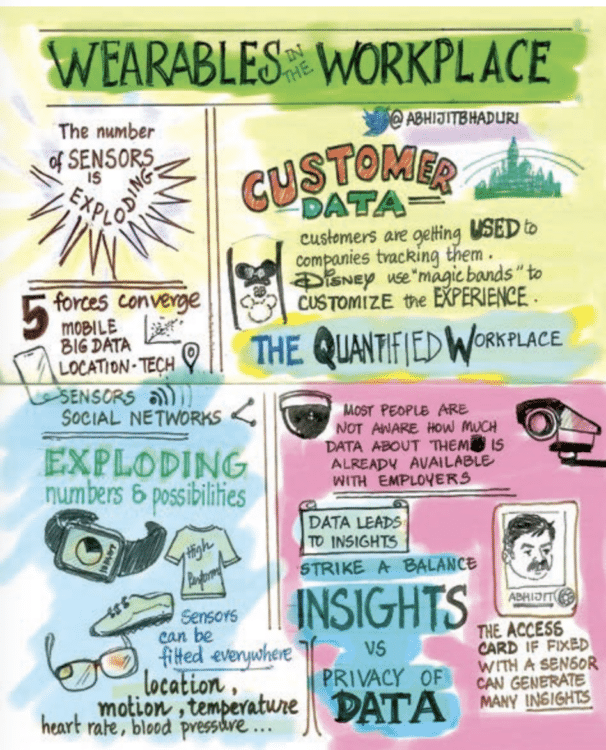 WEARABLES IN THE WORKPLACE
@ABHIJITBHADURI
The number
of SENSORS
IS
EXPLODING
CUSTOMER
DATA
customers are getting USED to
companies tracking them.
DISNEY use "magic bands" to
CUSTOMIZE the EXPERIENCE.
5 forces converge
MOBILE
BIG DATA
LOCATION-TECH
SENSORS
SOCIAL NETWORKS
THE QUANTIFIED WORKPLACE
EXPLODING
numbers & possibilities
High
Performa
Sensors
can be
fitted everywhere
location,
motion, temperature
heart rate, blood pressure...
MOST PEOPLE ARE
NOT AWARE HOW MUCH
DATA ABOUT THEM IS
ALREADY AVAILABLE
WITH EMPLOYERS
DATA LEADS
TO INSIGHTS
STRIKE A BALANCE
INSIGHTS
VS
PRIVACY OF
DATA
ABHIJIT
THE ACCESS
CARD IF FIXED
WITH A SENSOR
CAN GENERATE
MANY INSIGHTS